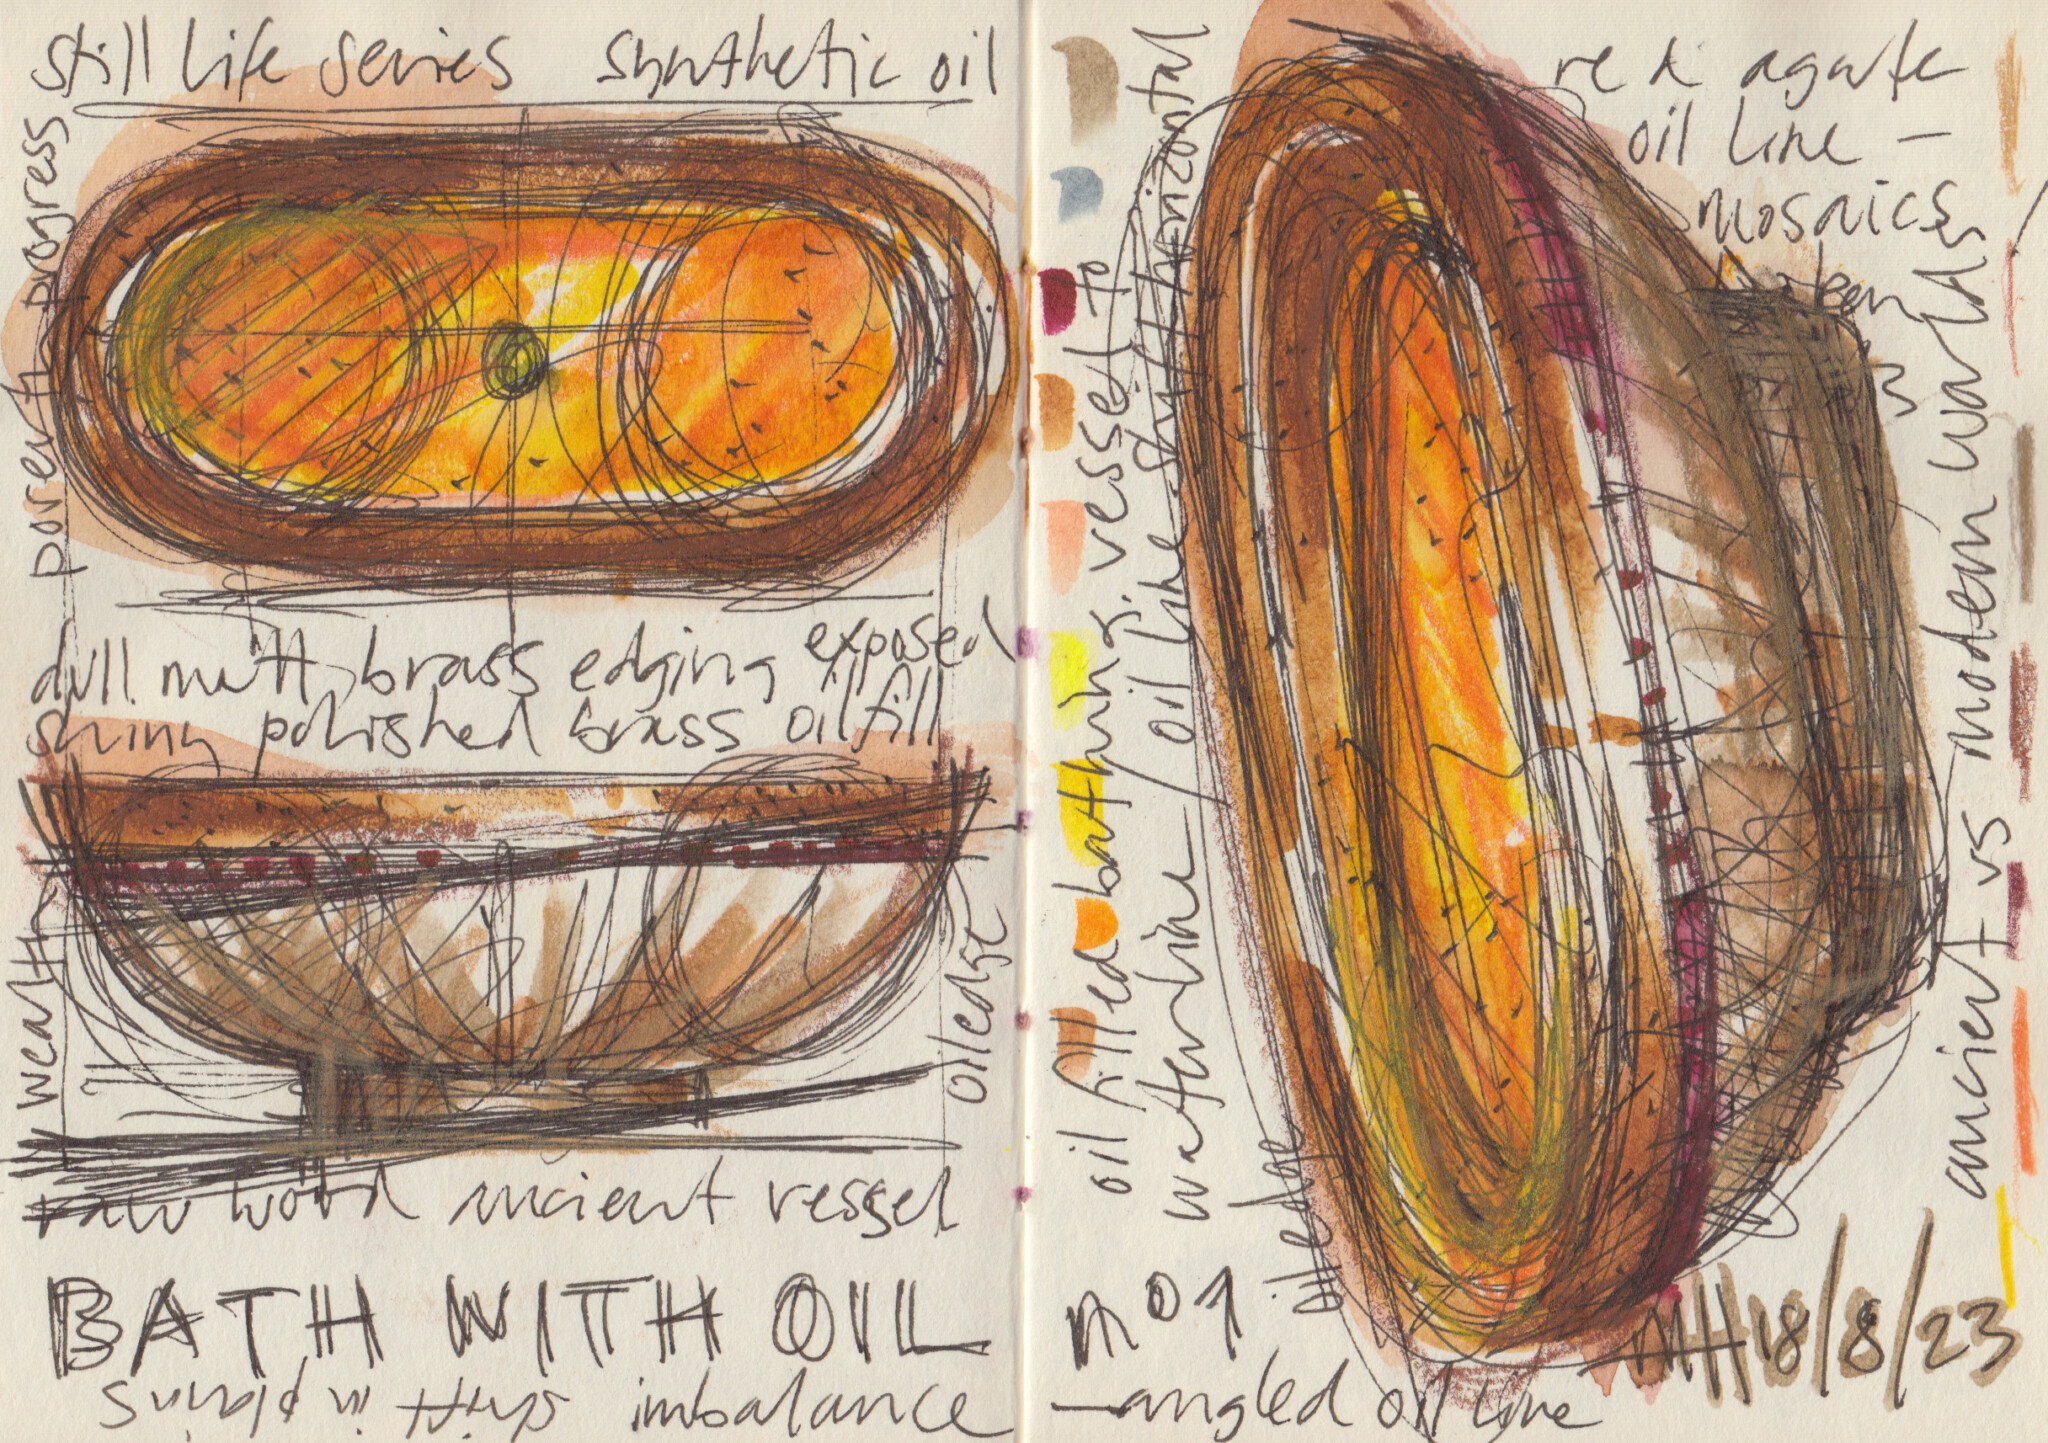 still life series synthetic oil
progress
dull matt brass edging exposed
shiny polished brass oil fill
wealth
oil edge
raw wood ancient vessel
BATH WITH OIL
shift in imbalance
red agate
oil line —
mosaics
between
oil filled bathing vessel to
waterline / oil line shift horizontal
oil edge
ancient vs modern worlds
nº1
MH 18/8/23
—angled oil line